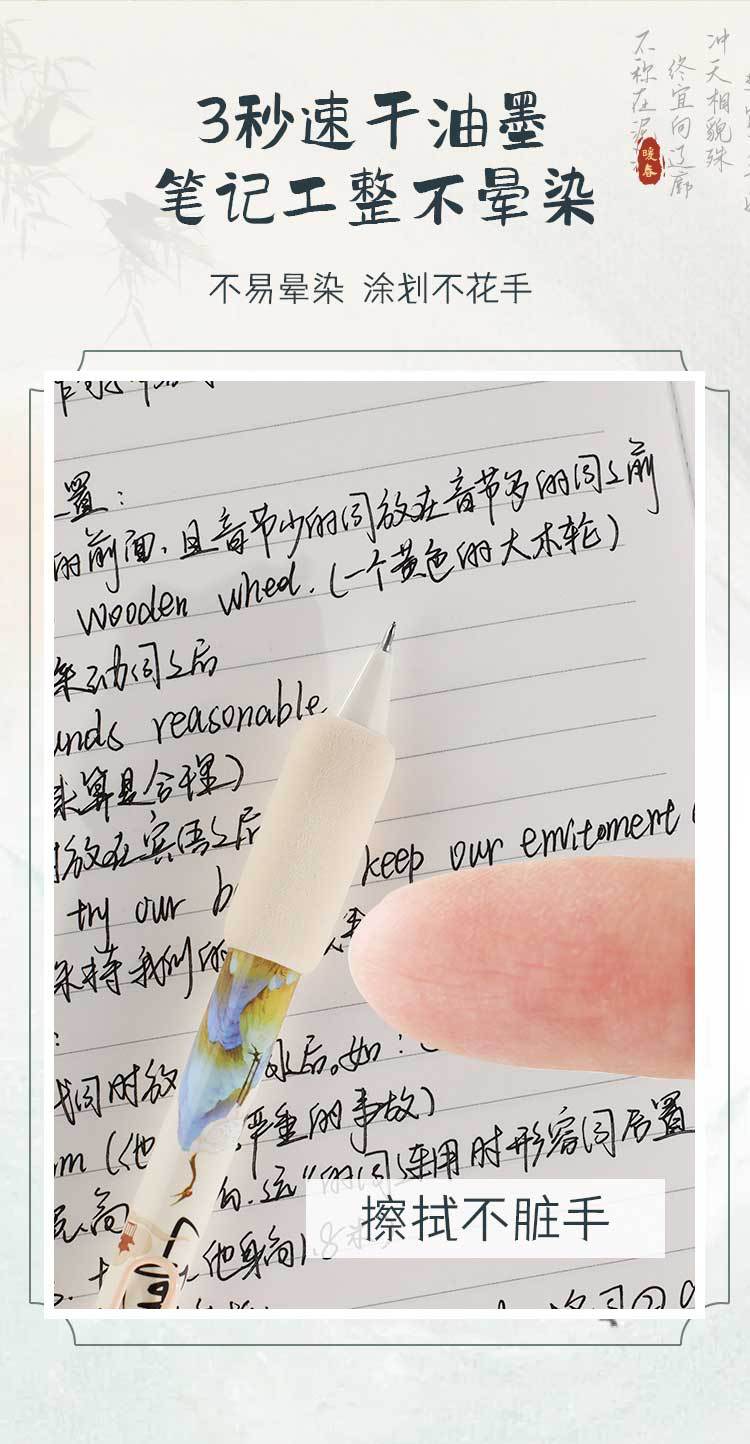 3秒速干油墨
笔记工整不晕染
不易晕染 涂划不花手
冲天相貌殊
终宜向辽廓
不称在泥
暖春
置:
的前面,且音节少的词放在音节多的词之前
wooden wheel.(一个黄色的大木轮)
系动词之后
unds reasonable
来算是合理)
放在宾语之后
try our b keep our envitoment
保持我们的
词时放 后。如:
m (他 严重的事故)
的词连用时形容词后置
高
他身高1.8米
擦拭不脏手